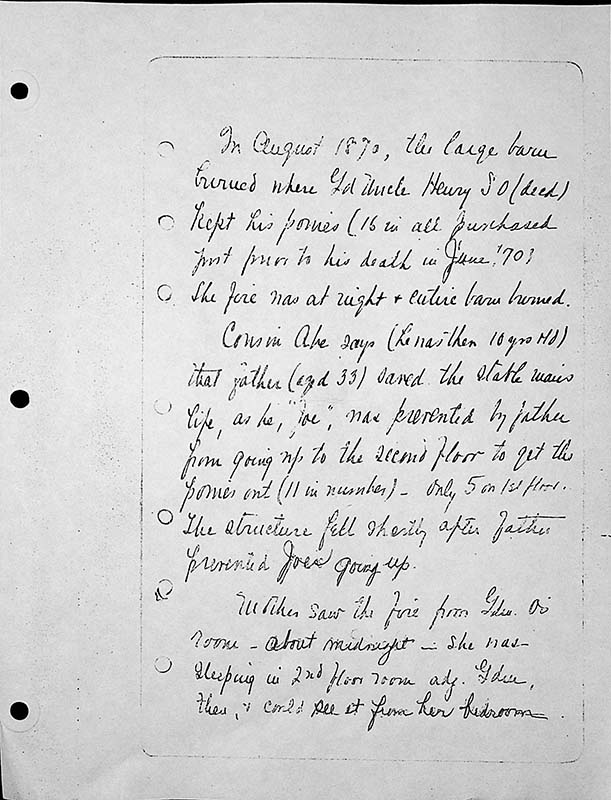 In August 1870, the large barn
burned where Gd Uncle Henry S O (decd)
kept his ponies (16 in all purchased
just prior to his death in June '70)
The fire was at night & entire barn burned.
Cousin Abe says (he was then 10 yrs old)
that father (aged 33) saved the stable mans
life, as he, "Joe", was prevented by father
from going up to the second floor to get the
ponies out (11 in number) - only 5 on 1st floor.
The structure fell shortly after Father
prevented Joe going up.
Mother saw the fire from
room - about midnight - she was
sleeping in 2nd floor room adj.
then, & could see it from her bedroom.